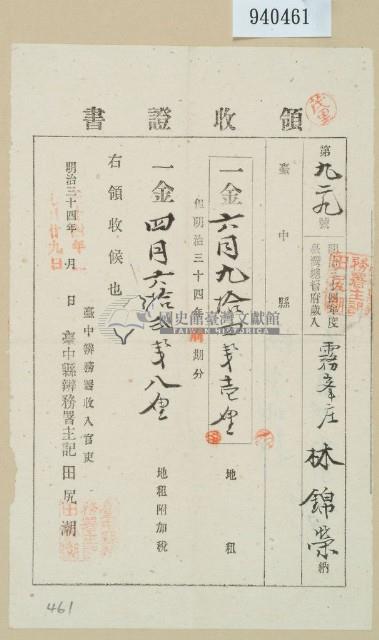 940461
領收證書
第九二九號
明治三十四年度
臺灣總督府歲入
霧峯庄 林錦榮 納
臺中縣
一金六円九拾 錢壱厘 地租
但明治三十四年前期分
一金四円六拾 錢八厘 地租附加稅
右領收候也
明治三十四年 月 日
臺中辨務署收入官吏
臺中縣辨務署主記 田尻潮
國史館臺灣文獻館
TAIWAN HISTORICA
461